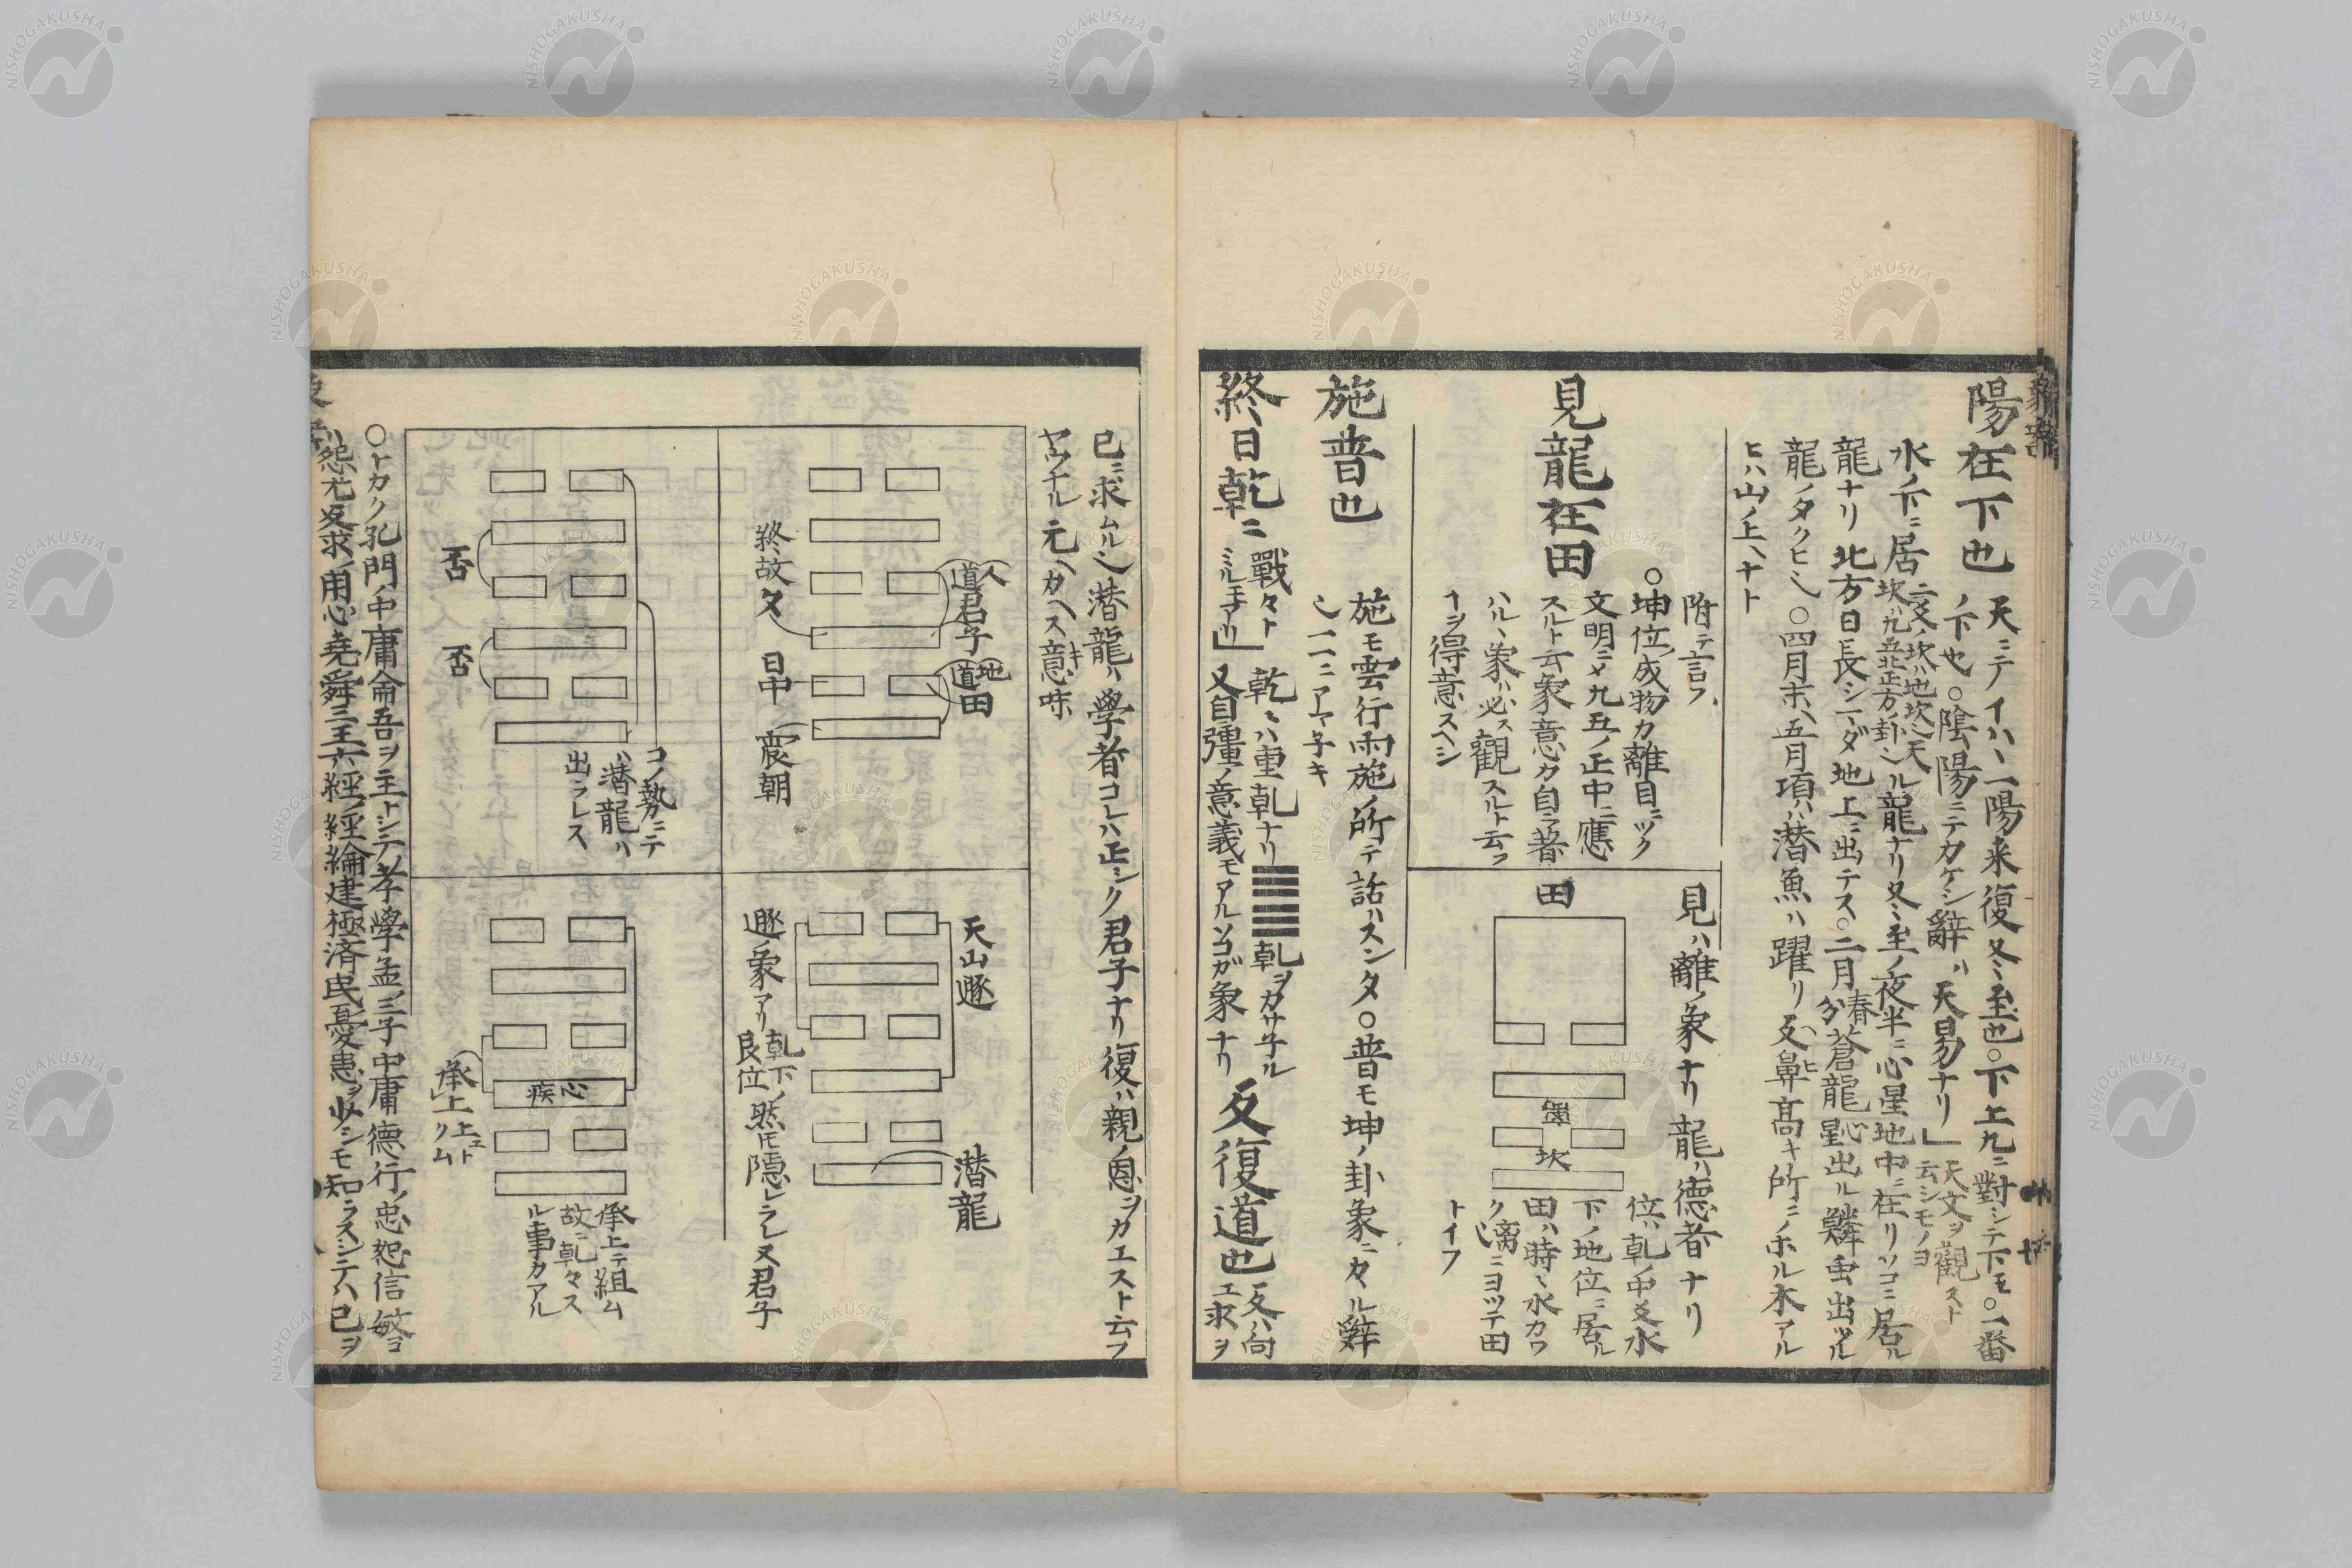 陽在下也
天ニテイハヽ一陽来復冬ミ至也○下上九ニ對シテ下モ○一番
ノ下也○陰陽ニテカケシ辭ハ天易ナリ」
天文ヲ観スト
云シモノヨ
水ノ下ニ居
二爻ノ坎ハ地坎ハ天
坎ハ九五北正方ノ卦シ
ル龍ナリ冬ミ至ノ夜半ニ心星地中ニ在リソコニ居ル
龍ナリ北方日長シニダ地上ニ出テス○二月春分蒼龍心星出ル鱗虫出ツル
龍ノタクヒシ○四月末ヘ五月項ハ潜魚ハ躍リ反鼻ヘヒ高キ所ニノホル木アル
ヒハ山ノ上ヘナト
見龍在田
附テ言フ
○坤位ノ成物カ離目ニツク
文明ニメ九五ノ正中ニ應
スルト云象意カ自ラ著
ハルヽ象ハ必ス觀スルト云フ
ヿヲ得意スヘシ
見ハ離ノ象ナリ龍ハ德者ナリ
位ハ乹ノ中爻水
下ノ地位ニ居ル
田ハ時ミ水カワ
ク シ離ニヨツテ田
トイフ
田
坎
施普也
施モ雲行雨施ノ所テ話ハスンタ○普モ坤ノ卦象ニ々ル辭
シ一一ニアマ子キ
終日乾ニ
戰々ト
ミルモアリ」
乾ミハ重乹ナリ
乹ヲカサ子ル
又自彊ノ意義モアルソコガ象ナリ
反復道也
反ハ向
エ求ヲ
已ニ求ムルシ潜龍ハ學者コレハ正シク君子ナリ復ハ親ノ恩ヲカエスト云フ
ヤウナル元ヘカヘスキ意味
人道君子
地道田
終故夂
日中
震朝
コノ勢ニテ
ハ潜龍ハ
出ラレス
否
否
天山遯
潜龍
遯ノ象アリ
乹下ノ
艮位
然モ隠レラレ又君子
疾心
承上上エト
リム
承上テ組ム
故ニ乹々ス
ル事カアル
○トカク孔門ノ中庸侖吾ヲ主トシテ孝學孟ノ三子中庸德行ノ忠恕信敏ヨ
ハ怨尤反求ノ用心堯舜三王六經ノ経綸建極済民憂患ヲ必シモ知ラスシテハ已ヲ